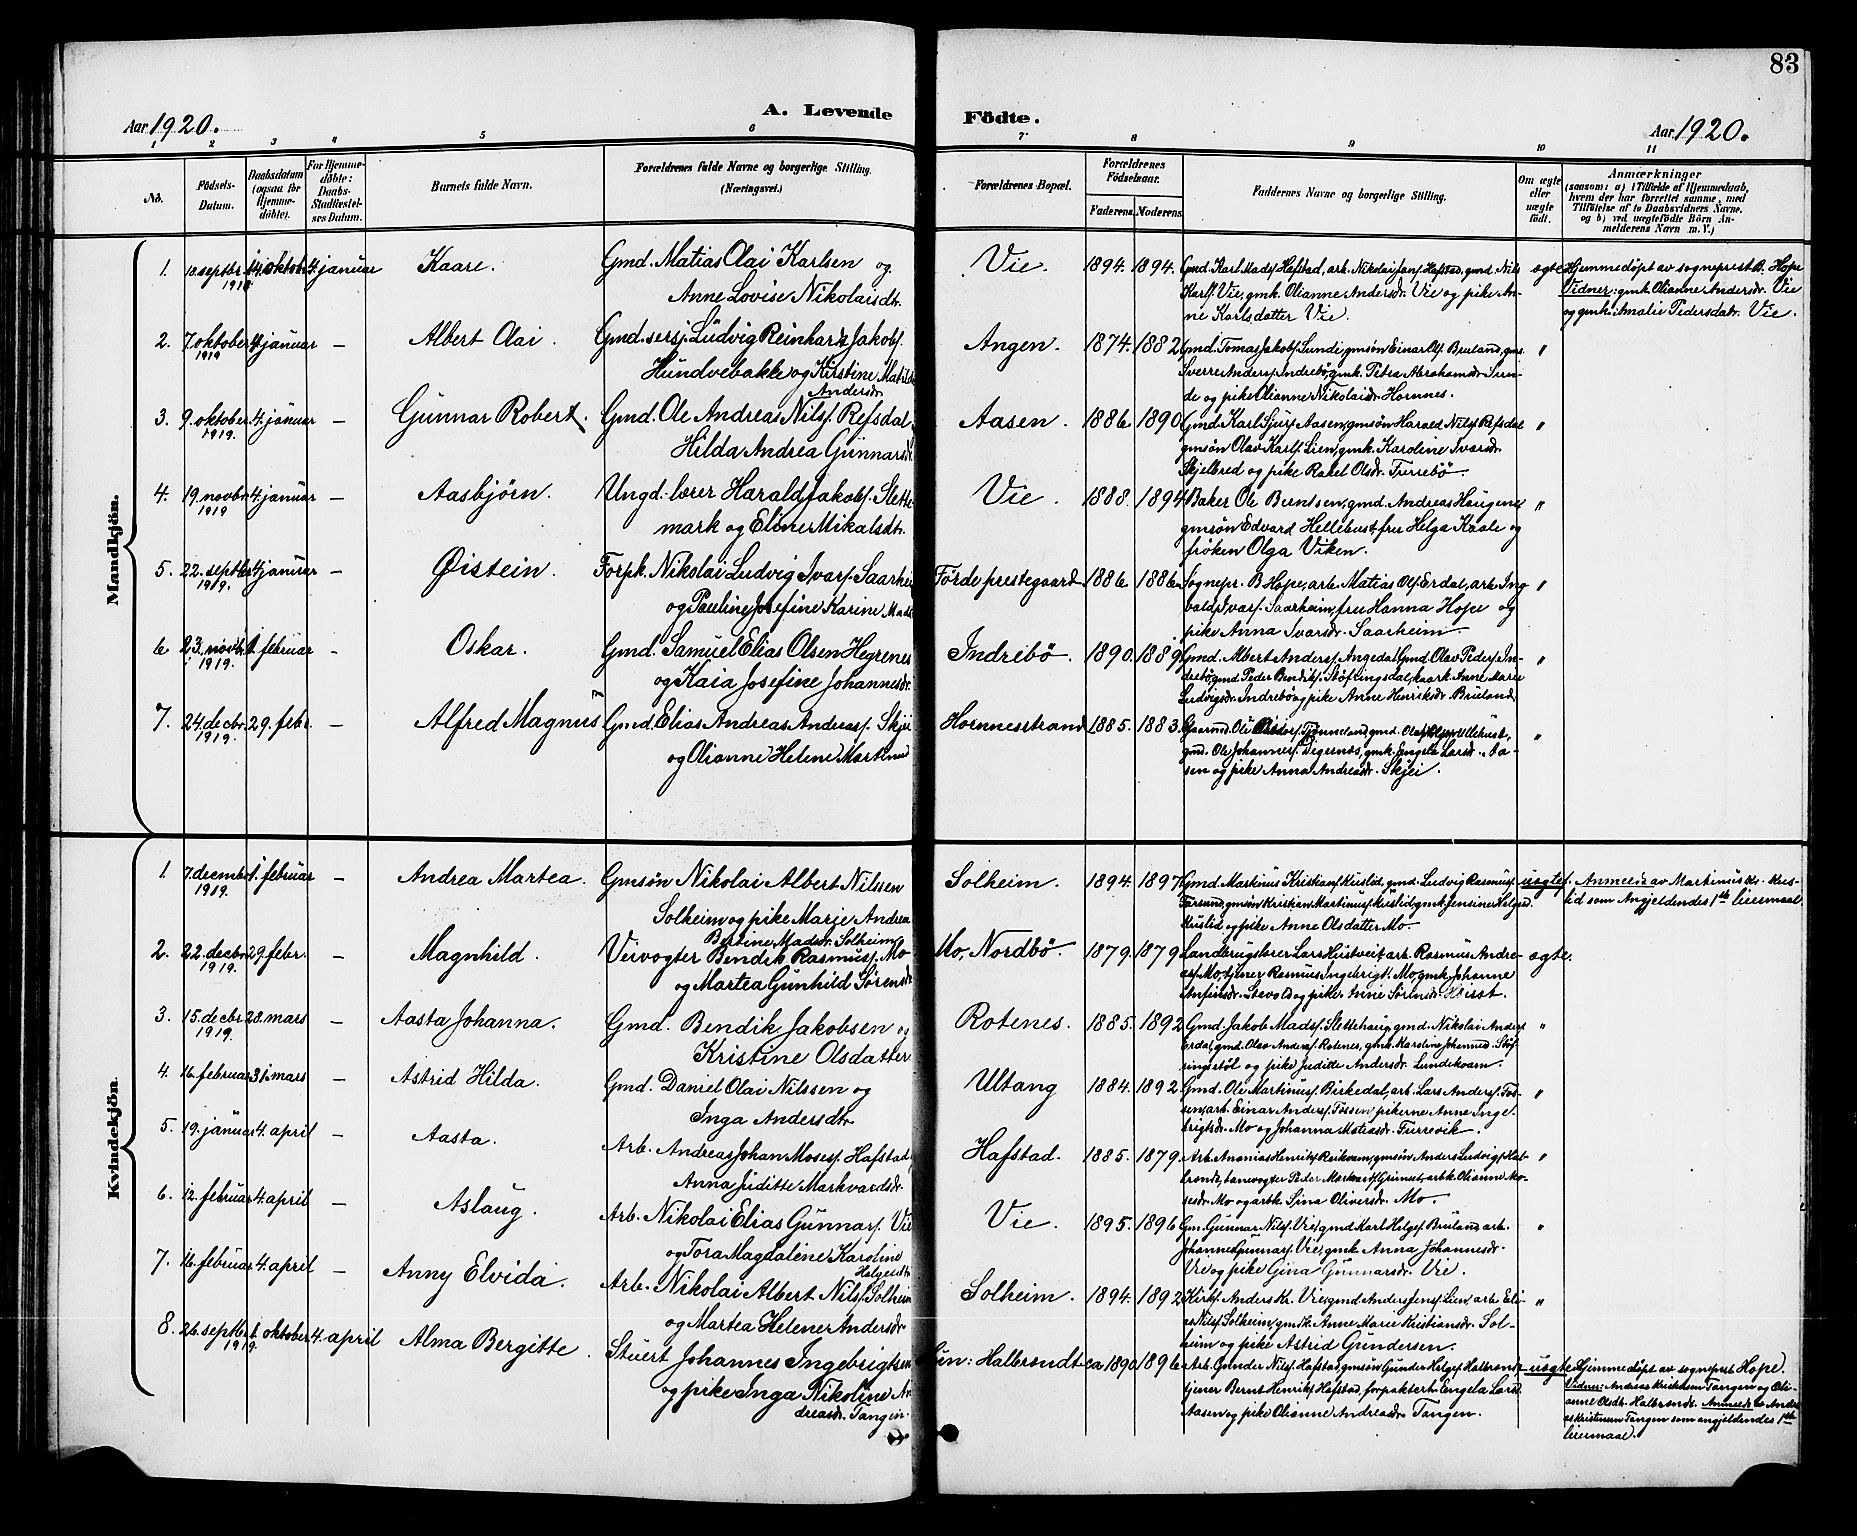 83
Aar 1920.
A. Levende Födte.
Aar 1920.
1 2 3 4 5 6 7 8 9 10 11
No.
Födsels-Datum.
Daabsdatum (ogsaa for Hjemme-döbte).
For Hjemme-döbte: Daabs-Stadfæstel-ses Datum.
Barnets fulde Navn.
Forældrenes fulde Navne og borgerlige Stilling. (Næringsvei.)
Forældrenes Bopæl.
Forældrenes Födselsaar.
Faderens. Moderens.
Faddernes Navne og borgerlige Stilling.
Om ægte eller uægte födt.
Anmærkninger
(saasom: a) i Tilfælde af Hjemmedaab, hvem der har forrettet samme, med Tilföielse af to Daabsvidners Navne, og b) ved uægtefödte Börn An-melderens Navn m. V.)
Mandkjön.
1. 10 septbr 1918 14 oktobr 4 januar Kaare. Gmd. Matias Olai Karlsen og
Anne Lovise Nikolaisdtr.
Vie. 1894. 1894. Gmd. Karl Madsf. Hafstad, arb. Nikolai Jansf. Hafstad, gmd. Nils
Karlf. Vie, gmk. Olianne Andersdr. Vie og pike An-
ne Karlsdatter Vie.
ægte Hjemmedøpt av sogneprest B. Hope
Vidner: gmk. Olianne Andersdr. Vie
og gmk: Amalie Pedersdatr. Vie.
2. 7 oktober 1919 4 januar – Albert Olai. Gmd. sersj. Ludvig Reinhardt Jakobf.
Hundvebakke og Kirstine Matilde
Andersdr.
Angen. 1874. 1882. Gmd. Tomas Jakobf. Sunde, gmsøn Einar Olf. Bruland, gms.
Sverre Andersf. Indrebø, gmk. Petra Abrahamsdr. Sun-
de og pike Olianne Nikolaidr. Hornnes.
"
3. 9. oktober 1919. 4. januar – Gunnar Robert. Gmd. Ole Andreas Nilsf. Refsdal
Hilda Andrea Gunnarsdr.
Aasen. 1886. 1890 Gmd. Karl Sjurf. Aasen, gmsøn Harald Nilsf. Refsdal
gmsøn Olav Karlf. Lien, gmk. Karoline Ivarsdr.
Skjelbred og pike Rakel Olsdr. Farsebø.
"
4. 19. novbr 1919 4 januar – Aasbjörn. Ungd.-lærer Harald Jakobf. Slette-
mark og Eline Mikalsdtr.
Vie. 1888. 1894 Baker Ole Berntsen, gmd. Andreas Haugene
gmsøn Edvard Hellebust, fru Helga Kaale og
frøken Olga Viken.
"
5. 22. septbr 1919. 4 januar – Øistein. Forpk. Nikolai Ludvig Ivarf. Saarheim
og Pauline Josefine Karine Mads
Förde prestegaard 1886. 1886. Sognepr. B Hope, arb. Matias Olf. Erdal, arb. Ing-
vald Ivarf. Saarheim, fru Hanna Hope og
pike Anna Ivarsdr. Saarheim.
"
6. 23. novbr 1919. 1 februar – Oskar. Gmd. Samuel Elias Olsen Hegrenes
og Kaia Josefine Johannesdr.
Indrebö. 1890. 1889 Gmd. Albert Andersf. Angedal, Gmd. Olav Pedersf. In-
drebø, gmd. Peder Bendikf. Støfringsdal, kaark Anne Marie
Ludvigsdr. Indrebø og pike Anne Henriksdr. Bruland
"
7. 24 decbr 1919. 29. febr. – Alfred Magnus Gmd. Elias Andreas Andreasf. Skjei
og Olianne Helene Martinus
Hornnesstrand 1885. 1883.
gmd. Ole Johannesf. Degernæs, gmk. Engela Larsd. Aa-
sen og pike Anna Andreasdr. Skjei.
"
Kvindekjön.
1. 7. decembr 1919. 1. februar – Andrea Martea. Gmsøn Nikolai Albert Nilssen
Solheim og pike Marie Andrea
Bertine Madsdr. Solheim
Solheim. 1894. 1897. Gmd. Martinus Kristianf. Kuslid, gmd. Ludvig Rasmusf.
Farsund, gmsøn Kristian Martinusf. Kuslid, gmk. Jensine Helgesd.
Kuslid og pike Anne Olsdatter Mo.
uægte. Anmeldt av Martinus Kr. Kus-
lid som Angjeldendes 1ste leiermaal.
2. 22. decbr 1919. 29. febr. – Magnhild. Veivogter Bendik Rasmusf. Mo
og Martea Gunhild Sørensdr
Mo, Nordbö. 1879. 1879 Landbrugslærer Lars Hustveit, arb. Rasmus Andre-
asf. Mo, tjener Rasmus Ingebrigt. Mo, gmk. Johanne
Anfinsdr. Stevold og pike Anne Sörensdr.
ægte.
3. 15. decbr 1919. 28. mars – Aasta Johanna. Gmd. Bendik Jakobsen og
Kristine Olsdatter
Rotenes. 1885. 1892 Gmd. Jakob Madsf. Slettehaug, gmd. Nikolai Andersf.
Erdal, gmd. Olav Andersf. Rotenes, gmk. Karoline Johannesd. Støf-
ringstøl og pike Juditte Andersdr. Lundekvam.
"
4. 16. februar 31. mars – Astrid Hilda. Gmd. Daniel Olai Nilssen og
Inga Andersdtr.
Ultang 1884. 1892. Gmd. Ole Martinusf. Birkedal, arb. Lars Andersf. Fos-
sen, arb. Einar Andersf. Fossen, pikerne Anne Inge-
brigtsdr. Mo og Johanna Matiasdr. Furrevik.
"
5. 19. januar 4. april – Aasta. Arb. Andreas Johan Mosesf. Hafstad
Anna Juditte Markvardsdr.
Hafstad. 1885. 1879. Arb. Ananias Henrikf. Reikvam, gmsøn Anders Ludvigf. Hal-
brendt, banevogter Peder Markvardf. Grimset, arbk. Olianne Mo-
sesdr. Mo og arbk. Sina Oliversdr. Mo.
"
6. 12. februar 4. april – Aslaug. Arb. Nikolai Elias Gunnarf. Vie
og Tora Magdalene Karoline
Helgesdtr
Vie. 1895. 1896 Gm. Gunnar Nilsf. Vie, gmd. Karl Helgef. Bruland, arb.
Johannes Gunnarf. Vie, gmk. Anna Johannesdr.
Vie og pike Gina Gunnarsdr. Vie.
"
7. 16. februar 4. april – Anny Elvida. Arb. Nikolai Albert Nilsf. Solheim
og Martea Helene Andersdr.
Solheim. 1894. 1892 Kirkf. Anders Kr. Vie, gmd. Anders Jensf. Lien, arb. Eli-
as Nilsf. Solheim, gmk. Anne Marie Kristiansdr. Sol-
heim og pike Astrid Gundersen.
"
8. 26. septbr 1919. oktober 4. april Alma Bergitte. Stuert Johannes Ingebrigtsen
og pike Inga Nikoline An-
dreasdr. Tangen.
Halbrendt ca 1890 1896 Arb. Gunder Nilsf. Hafstad, gmsøn Gunder Helgef. Halbrendt,
tjener Bernt Henrikf. Hafstad, forpakterk. Engela Larsd.
Aasen og pike Olianne Andreasdr. Tangen.
uægte Hjemmedøpt av sogneprest Hope.
Vidner: Andreas Kristensen Tangen og Oli-
anne Olsdr. Halbrendt. Anmeldt av Andre-
as Kristensen Tangen som angjeldendes 1ste
leiermaal.